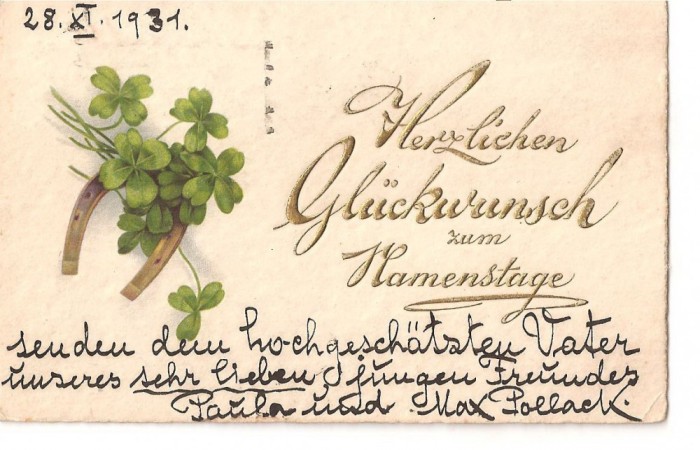 28. XI. 1931.
Herzlichen
Glückwunsch
zum
Namenstage
senden dem hochgeschätzten Vater
unseres sehr lieben jungen Freundes
Paula und Max Pollack.